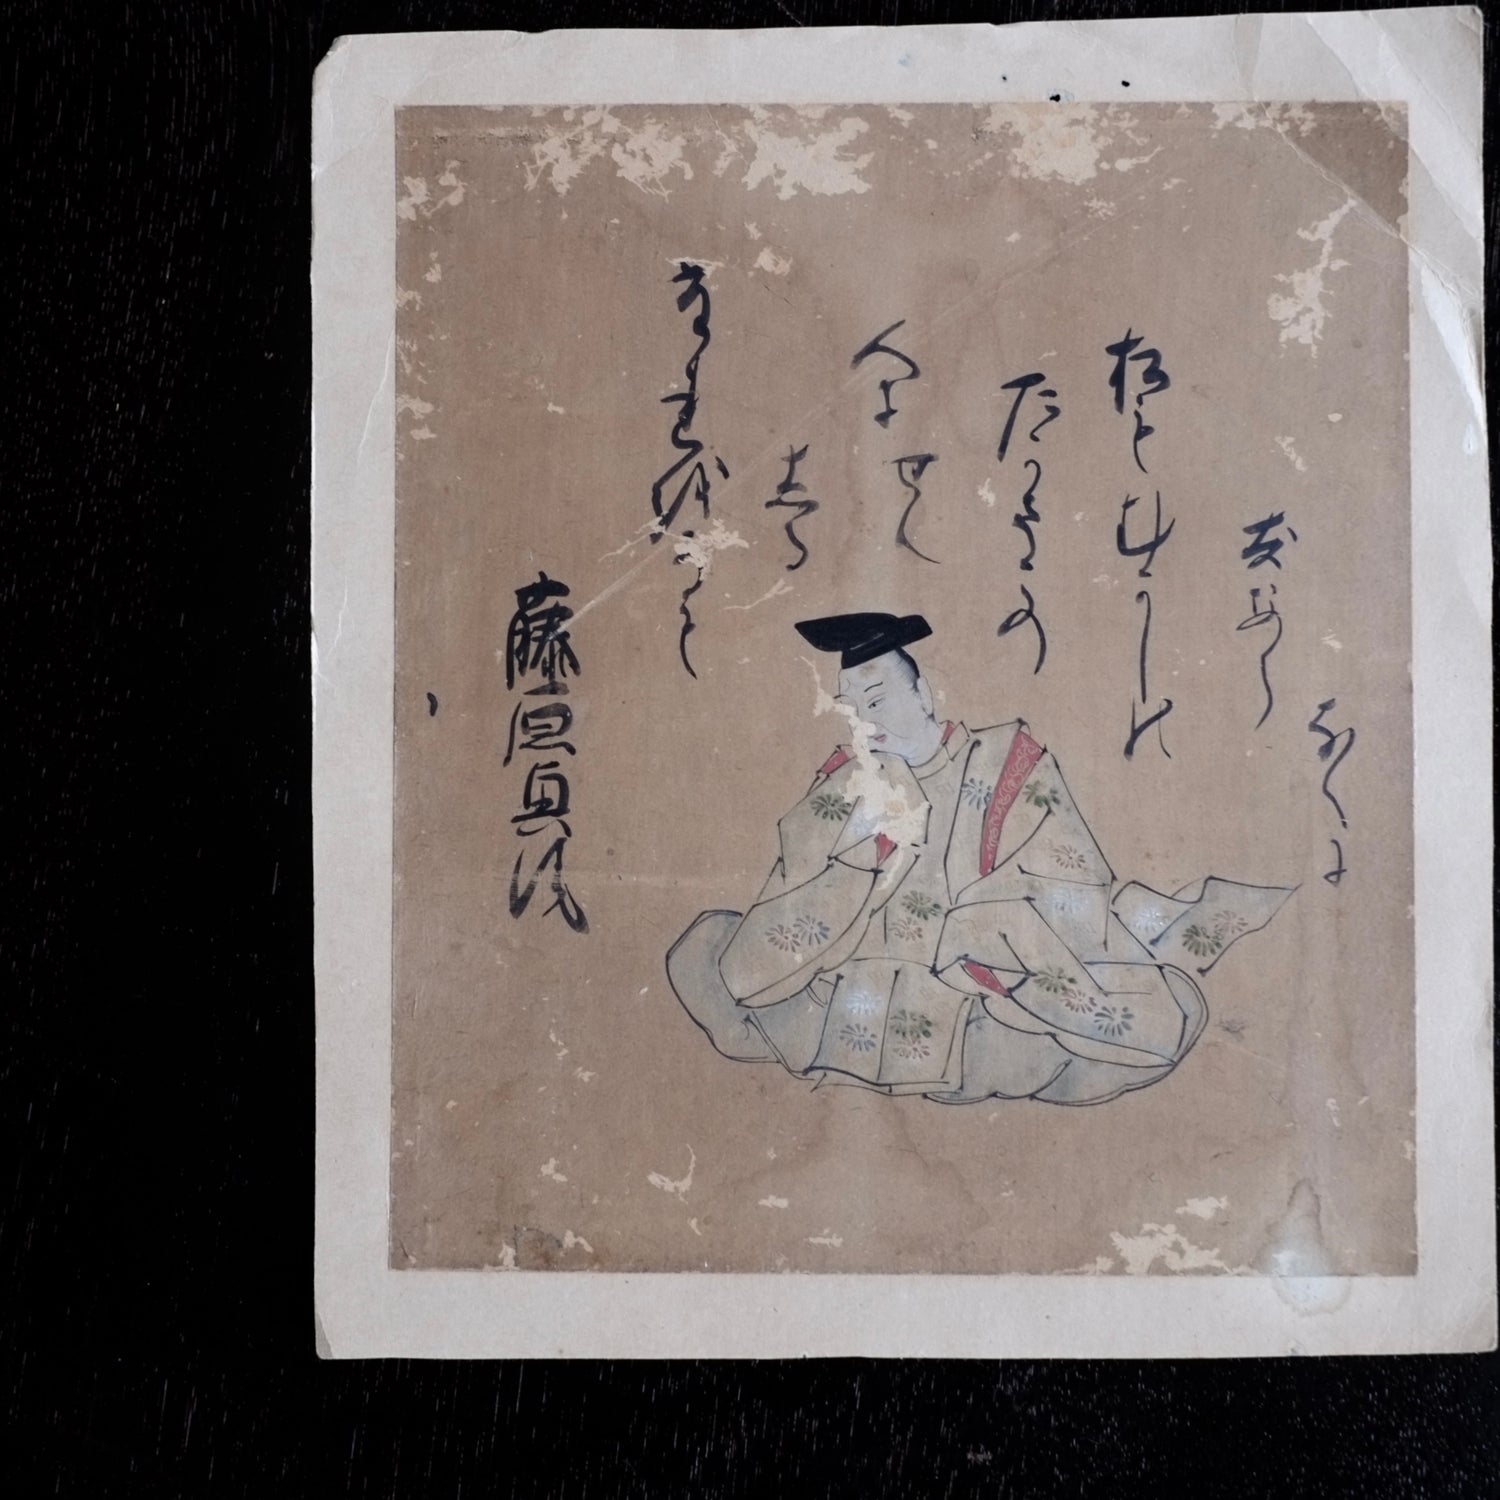 藤原興風
たれをかも
志る
人にせん
たかさこの
松もむかしの
友なら
なくに